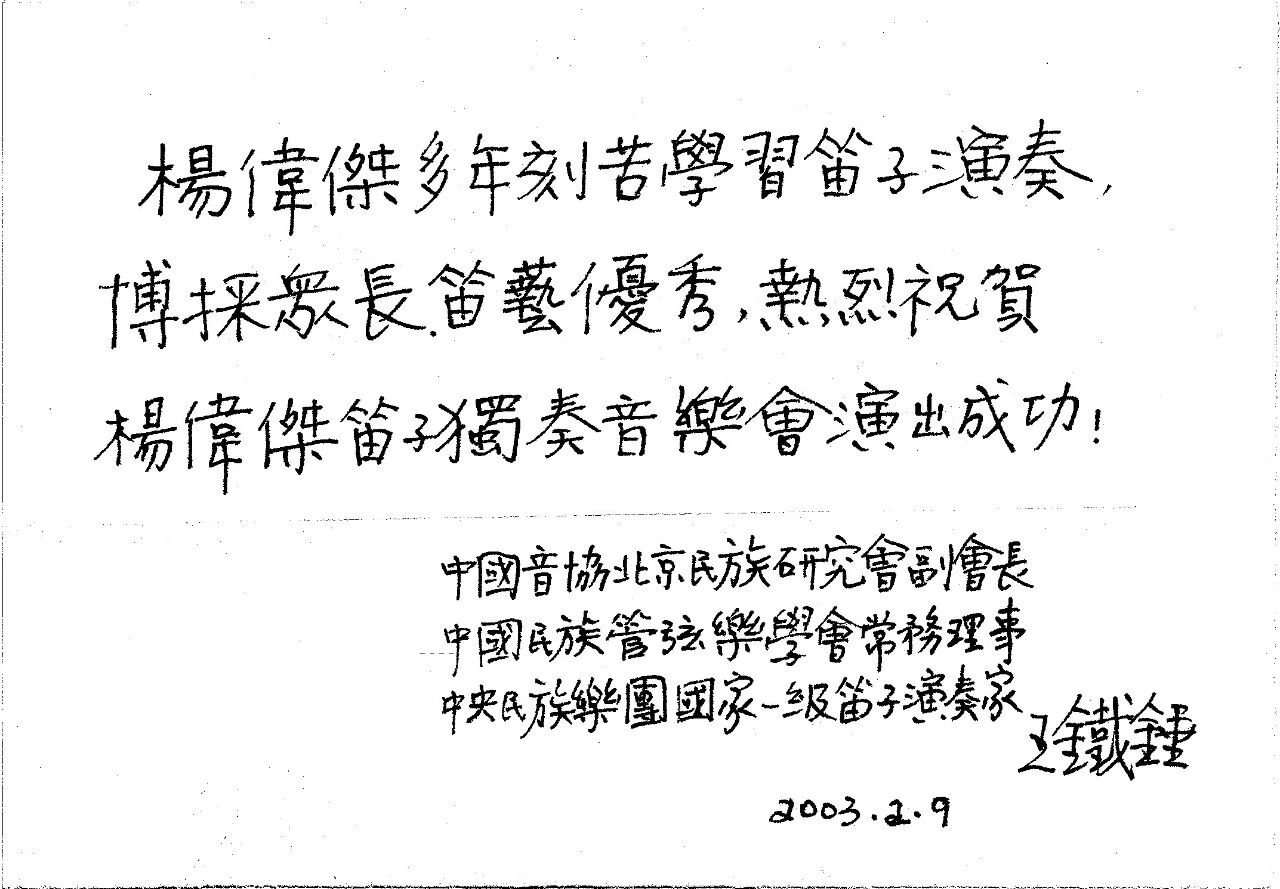 楊偉傑多年刻苦學習笛子演奏，
博採眾長.笛藝優秀，熱烈祝賀
楊偉傑笛子獨奏音樂會演出成功！
中國音協北京民族研究會副會長
中國民族管弦樂學會常務理事
中央民族樂團國家一級笛子演奏家
王鐵錘
2003.2.9